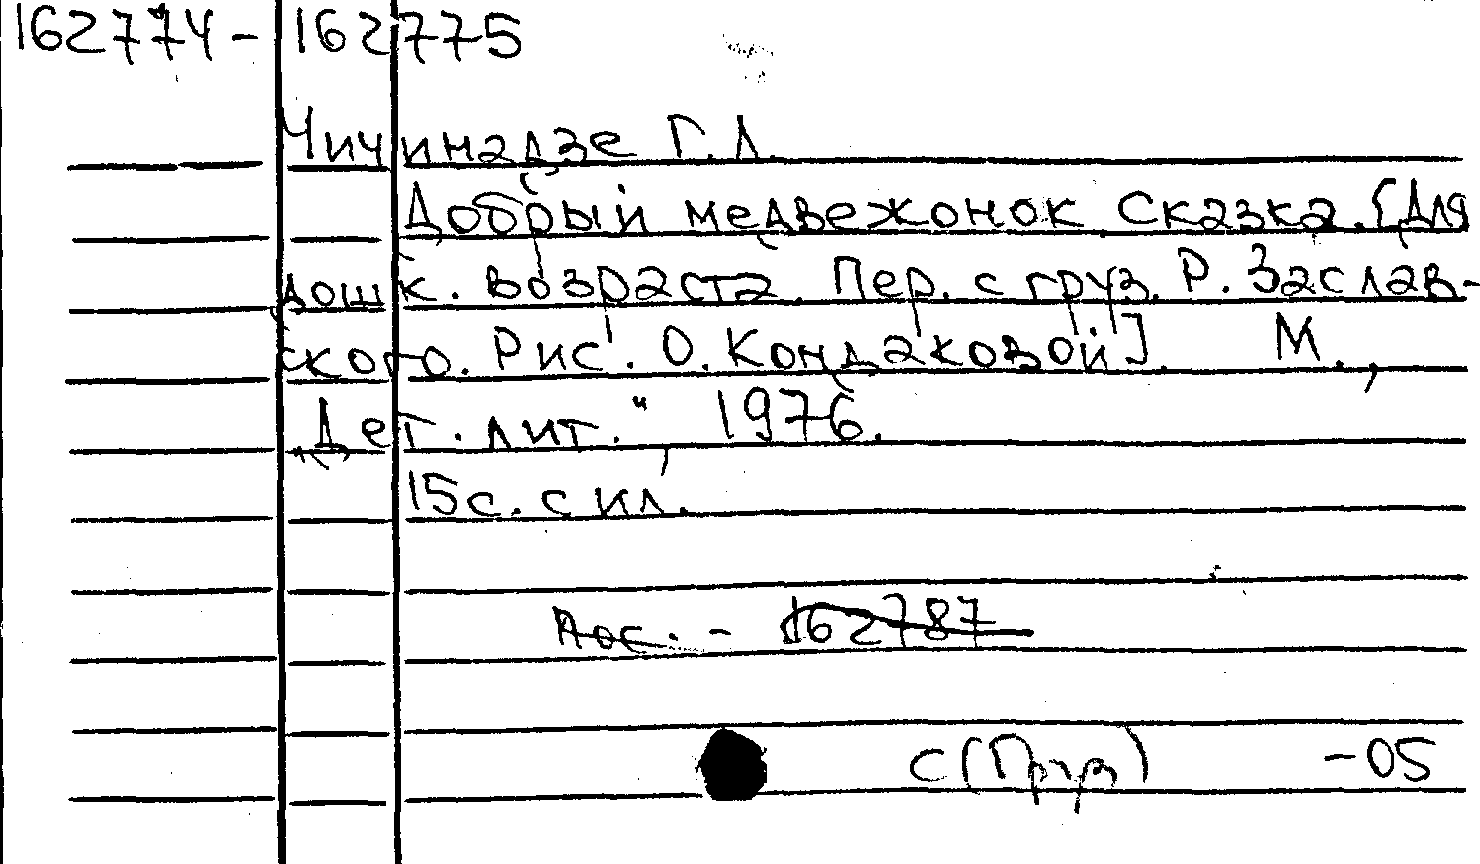 162774 - 162775
Чичинадзе Г. Л.
Добрый медвежонок Сказка. [Для
дошк. возраста. Пер. с груз. Р. Заслав-
ского. Рис. О. Кондаковой]. М.,
„Дет. лит.", 1976.
15с. с ил.
- 162787
С (Груз) -05